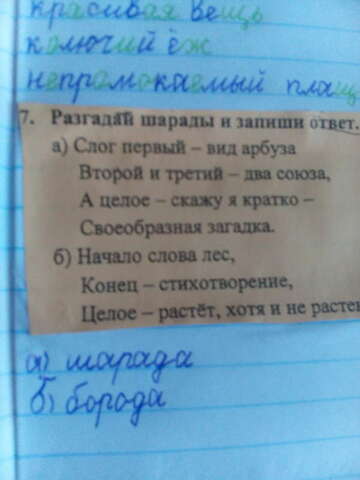 красивая вещь
колючий ёж
непромокаемый плащ
7. Разгадай шарады и запиши ответ.
а) Слог первый – вид арбуза
Второй и третий – два союза,
А целое – скажу я кратко –
Своеобразная загадка.
б) Начало слова лес,
Конец – стихотворение,
Целое – растёт, хотя и не расте
а) шарада
б) борода